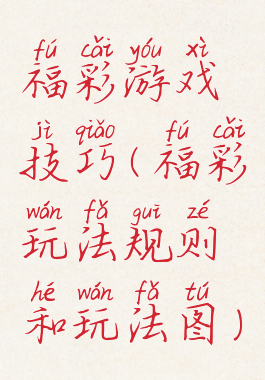 fú cǎi yóu xì
福彩游戏
jì qiǎo fú cǎi
技巧(福彩
wán fǎ guī zé
玩法规则
hé wán fǎ tú
和玩法图)